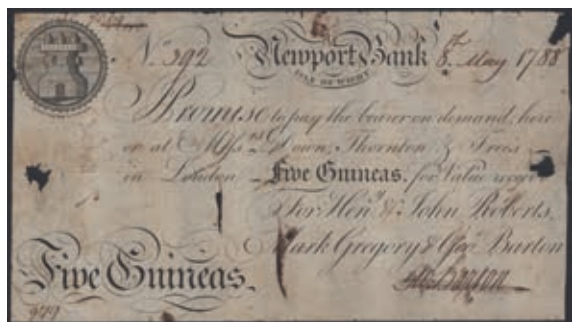 No. 392 Newport Bank 8th May 1788
ISLE OF WIGHT
I Promise to pay the bearer on demand, here
or at Messrs Down, Thornton & Frees
in London Five Guineas, for Value receiv
For Heny & John Roberts,
Mark Gregory & Geo Barton
Geo Barton
Five Guineas.